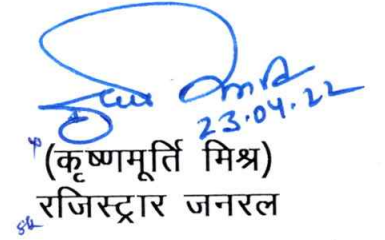 23.04.22
(कृष्णमूर्ति मिश्र)
रजिस्ट्रार जनरल